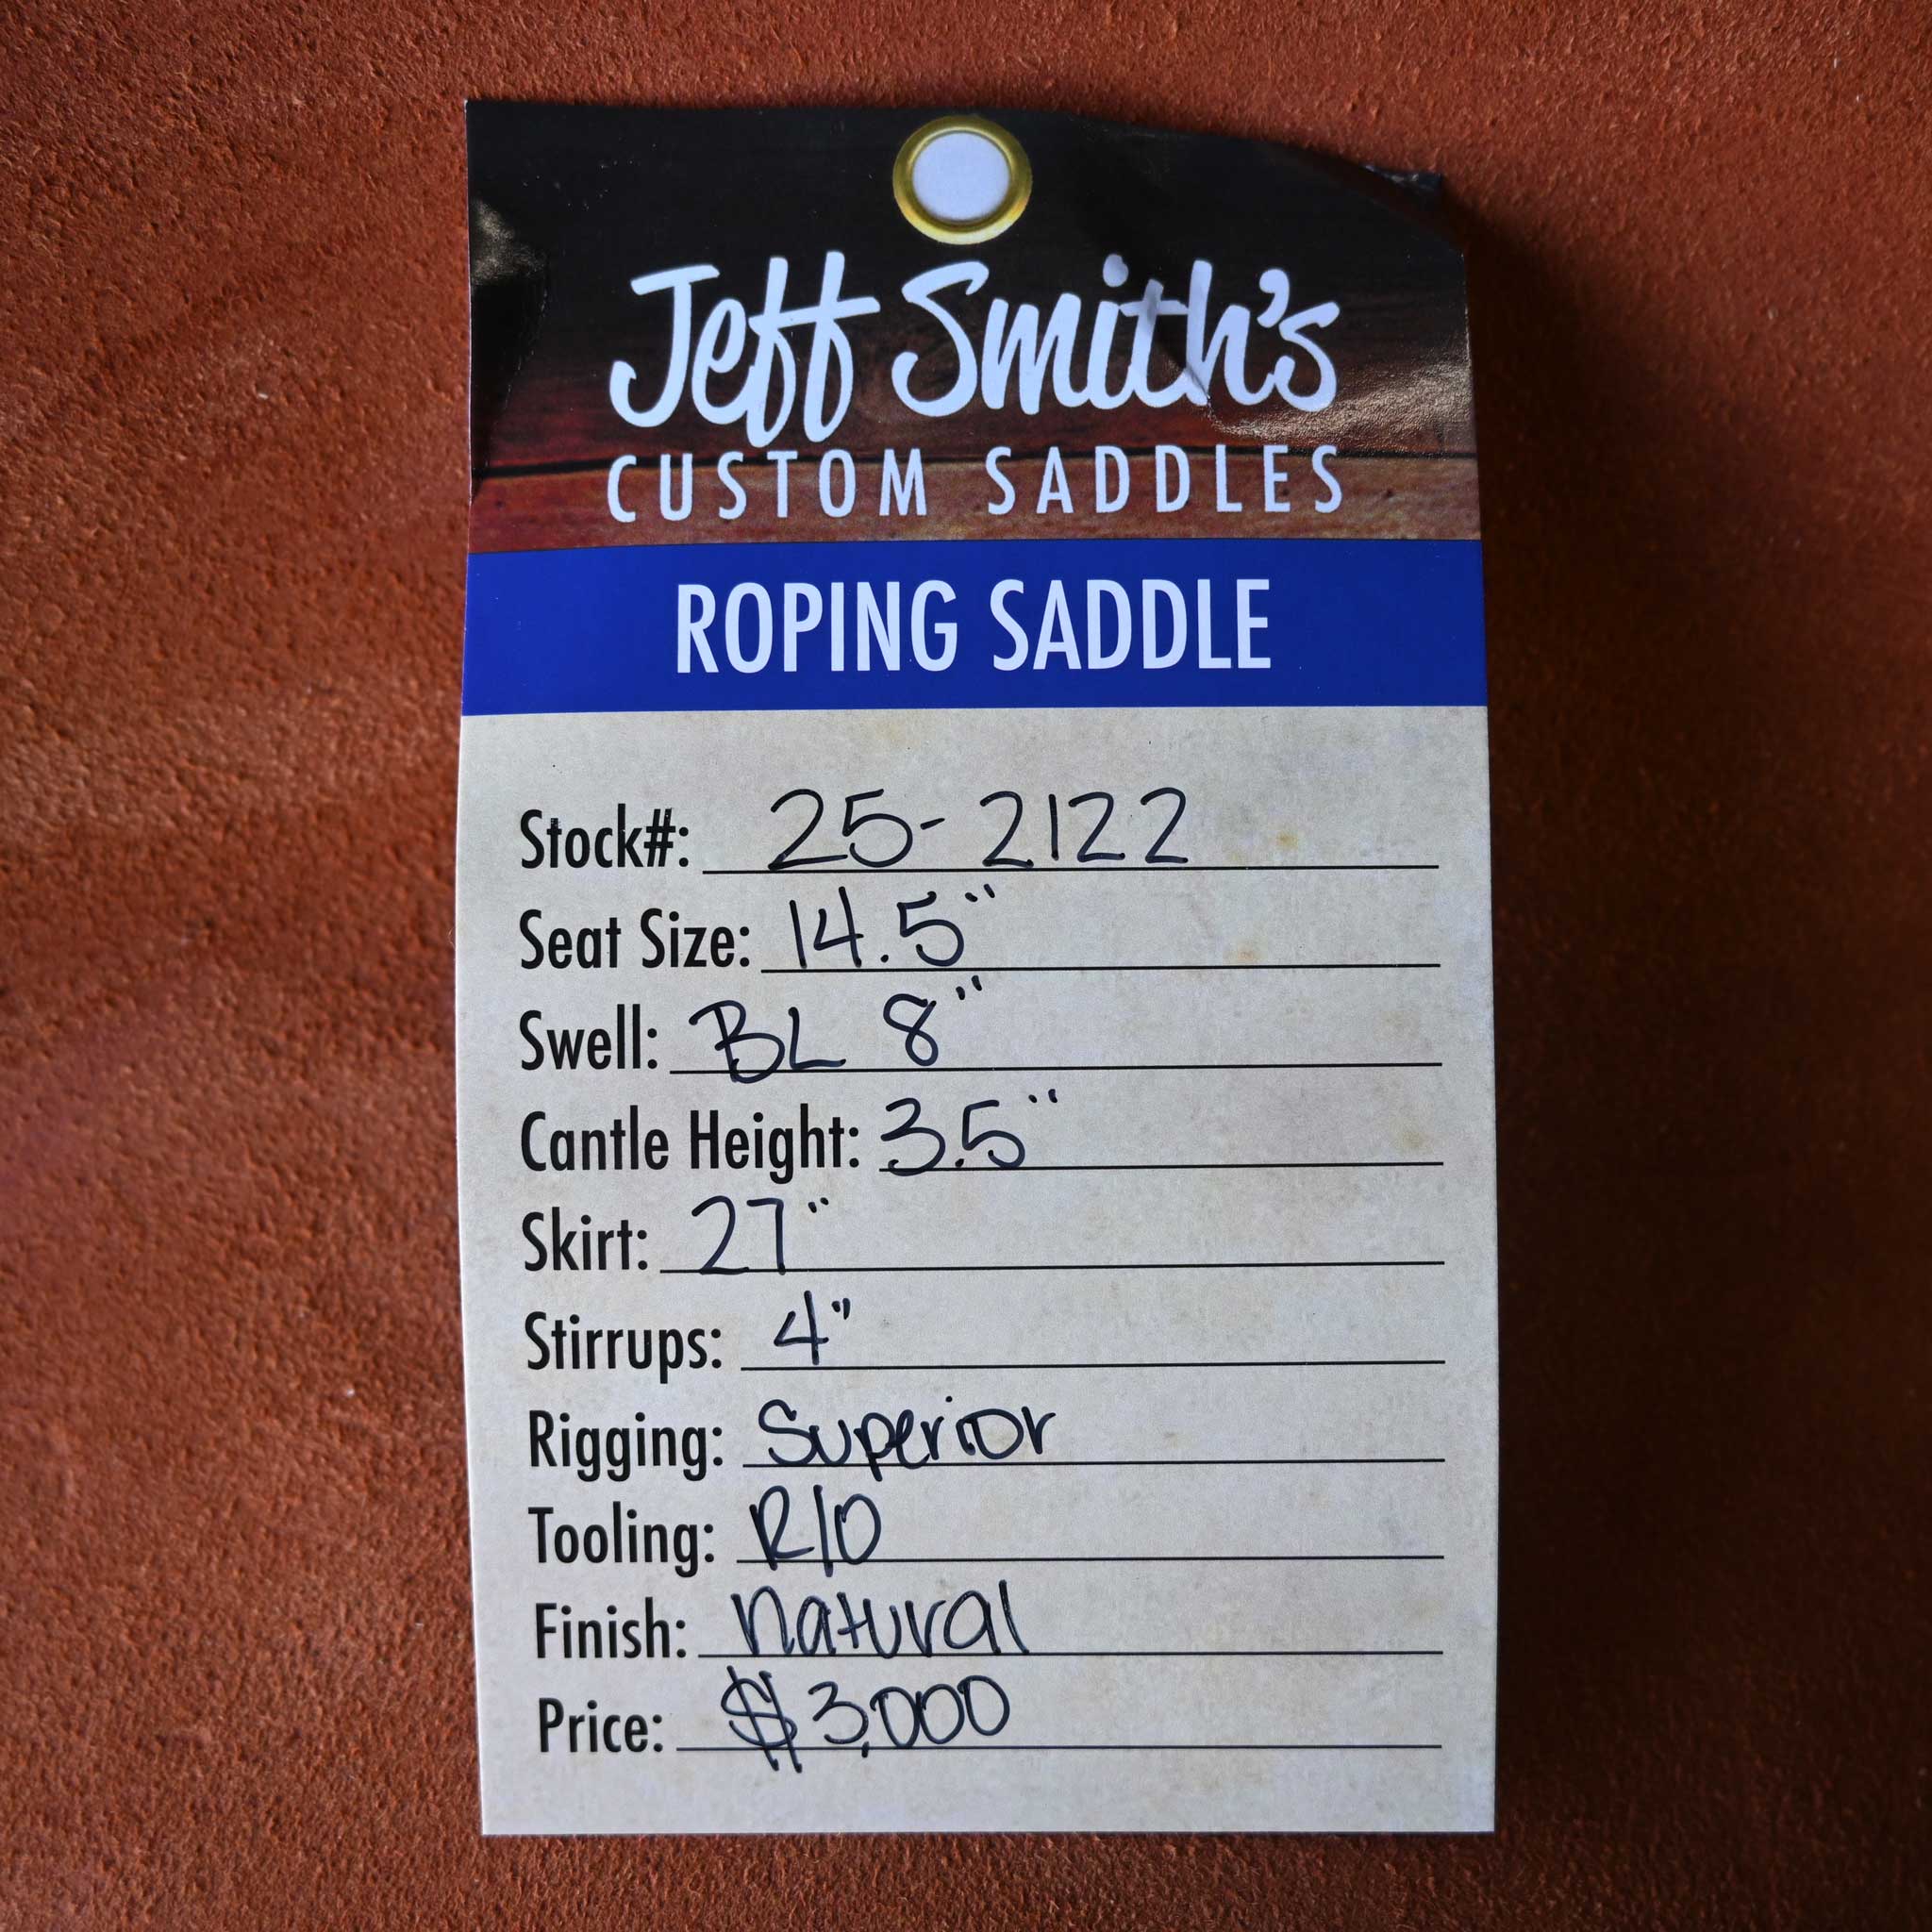 Jeff Smith's
CUSTOM SADDLES
ROPING SADDLE
Stock#: 25-2122
Seat Size: 14.5"
Swell: BL 8"
Cantle Height: 3.5"
Skirt: 27"
Stirrups: 4"
Rigging: Superior
Tooling: R/O
Finish: Natural
Price: $3,000